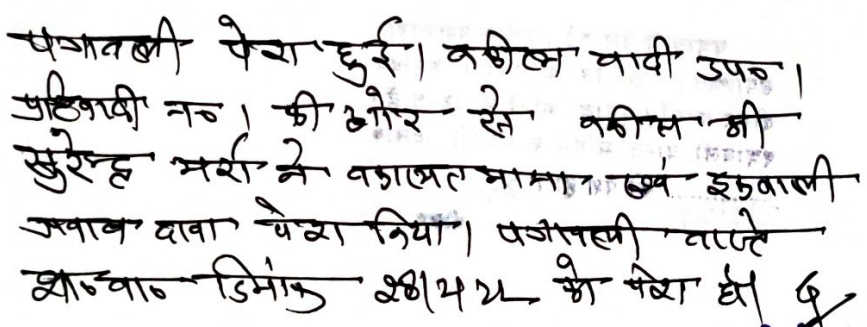 पत्रावली पेश हुई। वकील वादी उप०।
प्रतिवादी न० 1 की ओर से वकील श्री
सुरेन्द्र शर्मा ने वकालत नामा एवं इकबाली
जवाब दावा पेश किया। पत्रावली वास्ते
सा० वा० दिनांक को पेश हो।